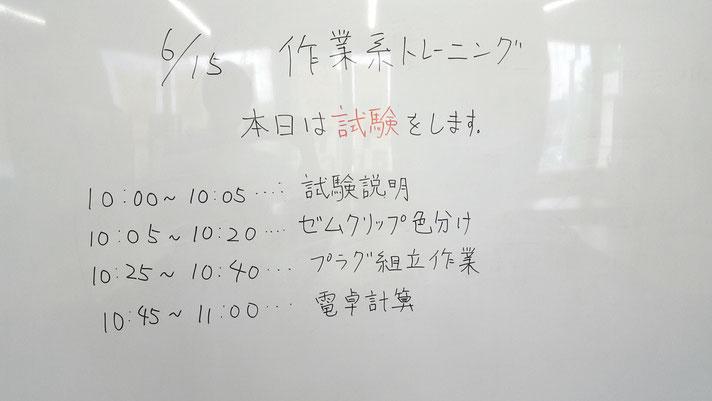 6/15 作業系トレーニング
本日は試験をします.
10:00~10:05‥‥: 試験説明
10:05~10:20‥‥ ゼムクリップ色分け
10:25~10:40‥‥ プラグ組立作業
10:45~11:00‥‥ 電卓計算